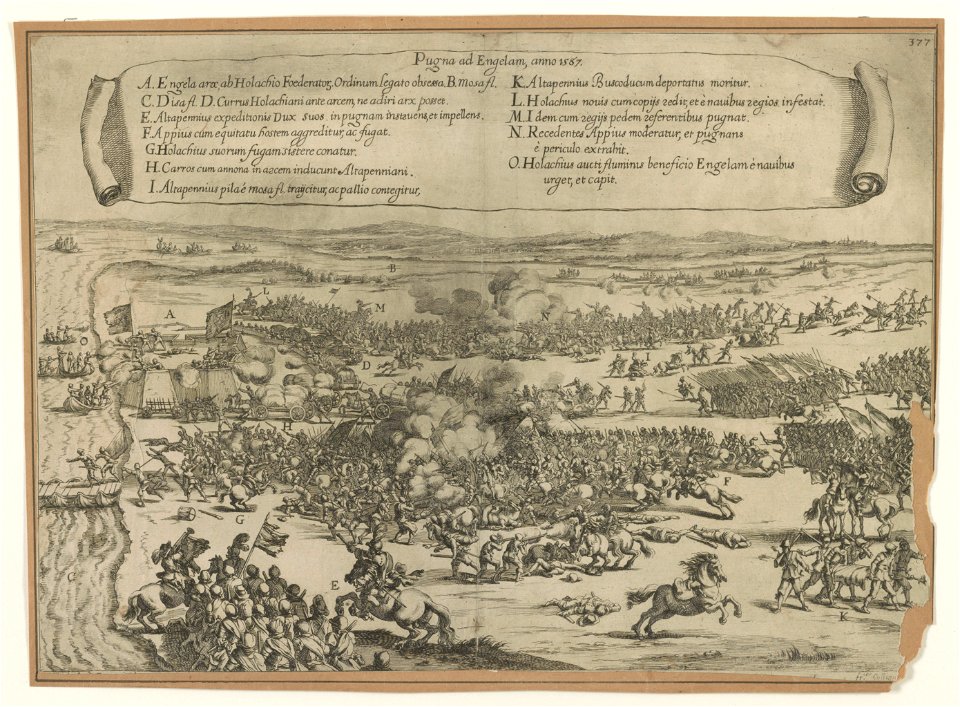 377
Pugna ad Engelam, anno 1587.
A. Engela arx, ab Holachio Fœderator, Ordinum legato obsessa. B. Mosa fl.
C. Disa fl. D. Currus Holachiani ante arcem, ne adiri arx posset.
E. Altapennius expeditionis Dux suos in pugnam instauens, et impellens.
F. Appius cum equitatu hostem aggreditur, ac fugat.
G. Holachius suorum fugam sistere conatur.
H. Carros cum annona in arcem inducunt Altapenniani.
I. Altapennius pila è mosa fl. traijcitur, ac pallio contegitur,
K. Altapennius Buscoducum deportatus moritur.
L. Holachius nouis cum copijs redit, et è nauibus regios infestat.
M. Idem cum regijs pedem referentibus pugnat.
N. Recedentes Appius moderatur, et pugnans
è periculo extrahit.
O. Holachius aucti fluminis beneficio Engelam è nauibus
urget, et capit.
L
B
A
M
N
O
D
I
H
F
G
E
C
K